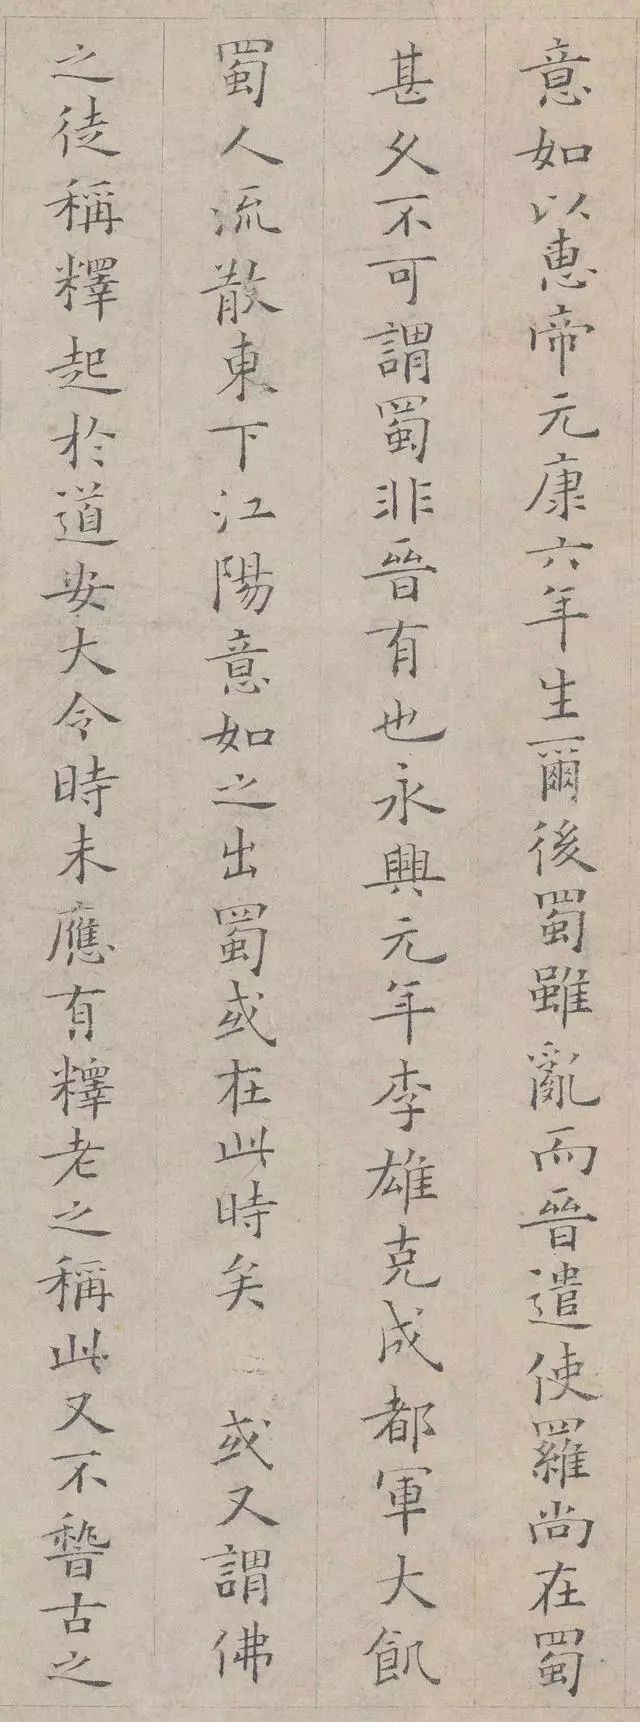 意如以恵帝元康六年生爾後蜀雖亂而晉遣使羅尚在蜀
甚久不可謂蜀非晉有也永興元年李雄克成都軍大飢
蜀人流散東下江陽意如之出蜀或在此時矣 或又謂佛
之徒稱釋起於道安大令時未應有釋老之稱此又不稽古之